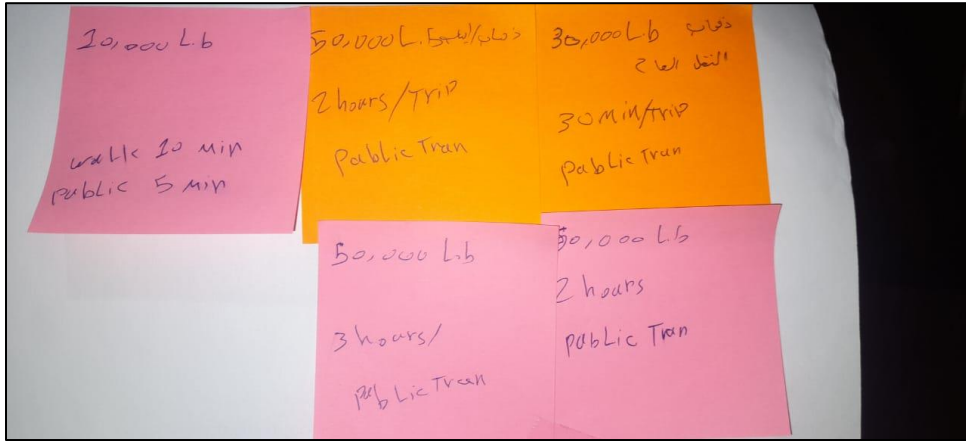 10,000 L.b
walk 10 min
public 5 min
50,000 L.
2 hours/Trip
Pablic Tran
30,000 L.b ذهاب
النقل العام
30 Min/trip
pablic Tran
50,000 L.b
3 hours/
Pablic Tran
50,000 L.b
2 hours
pablic Tran